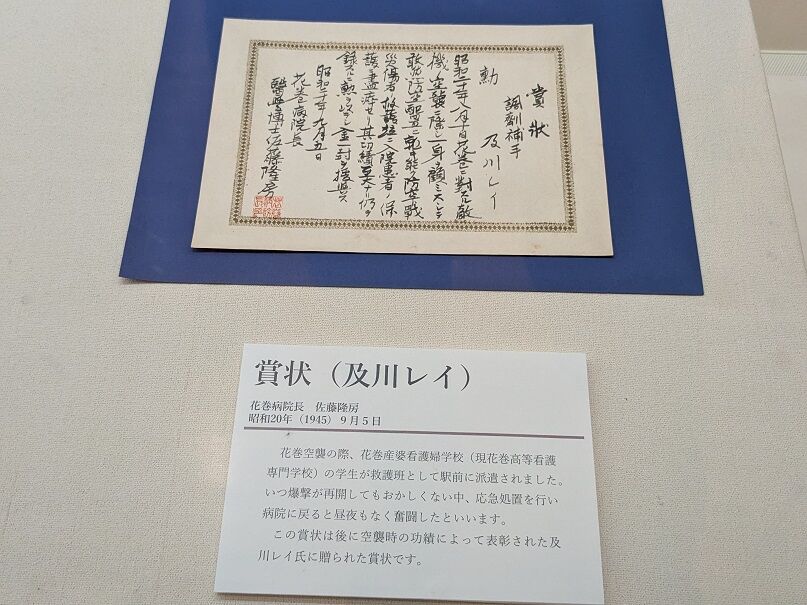 賞状
調剤補手
及川レイ
勲
昭和二十年八月十日花巻ニ対スル敵
機ノ空襲ニ際シ一身ヲ顧ミスシテ
敢然防空配置ニ
災傷者ノ救護並ニ入院患者ノ保
護ニ
昭和二十年九月五日
花巻病院長
醫學博士佐藤隆房
賞状（及川レイ）
花巻病院長　佐藤隆房
昭和20年（1945）９月５日
花巻空襲の際、花巻産婆看護婦学校（現花巻高等看護
専門学校）の学生が救護班として駅前に派遣されました。
いつ爆撃が再開してもおかしくない中、応急処置を行い
病院に戻ると昼夜もなく奮闘したといいます。
この賞状は後に空襲時の功績によって表彰された及
川レイ氏に贈られた賞状です。